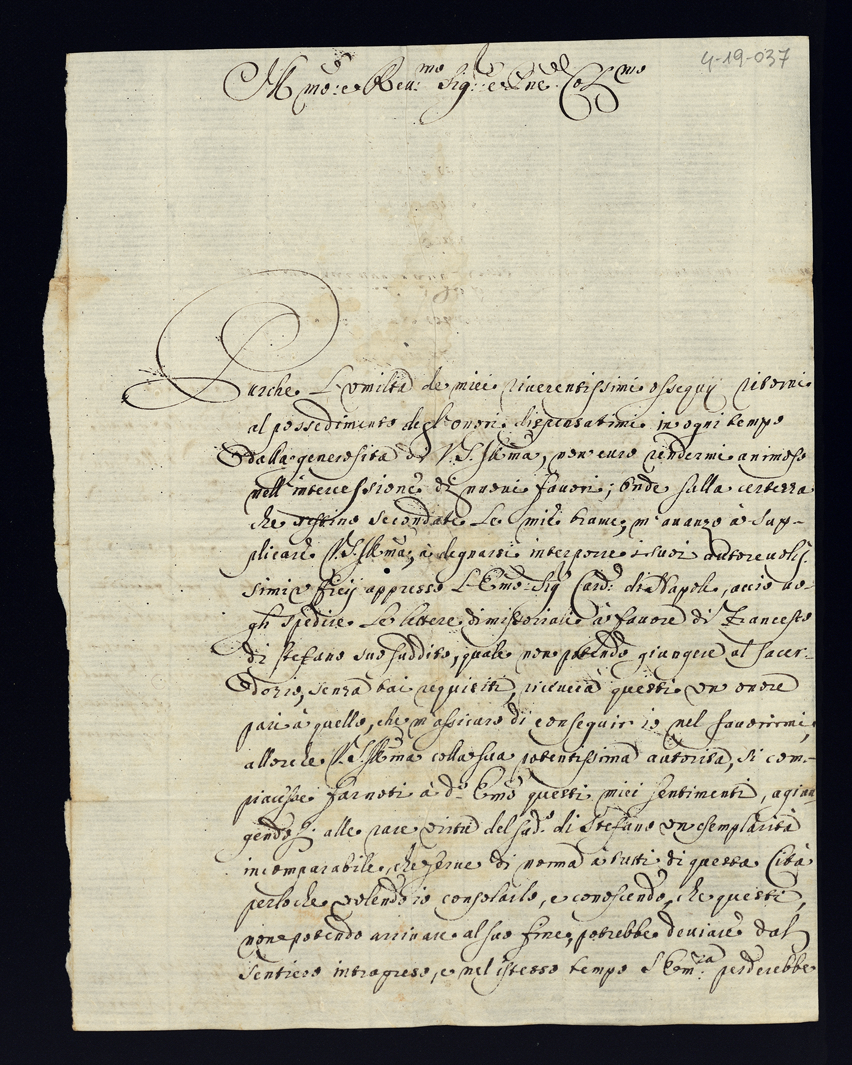 4-19-037
Ill.mo e Reu.mo Sig.r e Pne Col.mo
Purche l'umiltà de miei riuerentissimi ossequij ritorni
al possedimento degl'onori dispensatimi in ogni tempo
dalla generosità di V.S. Ill.ma, non curo rendermi animoso
nell'intercessione di nuoui fauori; Onde sulla certezza
che restino secondate le mie brame, m'auanzo à sup-
plicare V.S. Ill.ma, à degnarsi interporre i suoi autoreuolis-
simi officij appresso l'Emo Sig. Card. di Napoli, acciò uo-
gli spedire le lettere dimissoriali à fauore di Francesco
di Stefano suo suddito, quale non potendo giungere al sacer-
dozio, senza tai requisiti, riceuerà questi un onore
pari à quello, che m'assicuro di conseguir io nel fauorirmi,
allorche V.S. Ill.ma colla sua potentissima autorità, si com-
piacesse farnoti à d.o Emo questi miei sentimenti, agiun
gendosi alle rare uirtù del sud.o di Stefano un esemplarità
incomparabile, che serue di norma à tutti di questa Città
perloche uolendo io consolarlo, e conoscendo, che questi,
non potendo arriuare al suo fine, potrebbe deuiare dal
sentiero intrapreso, e nel istesso tempo S. Em.za perderebbe